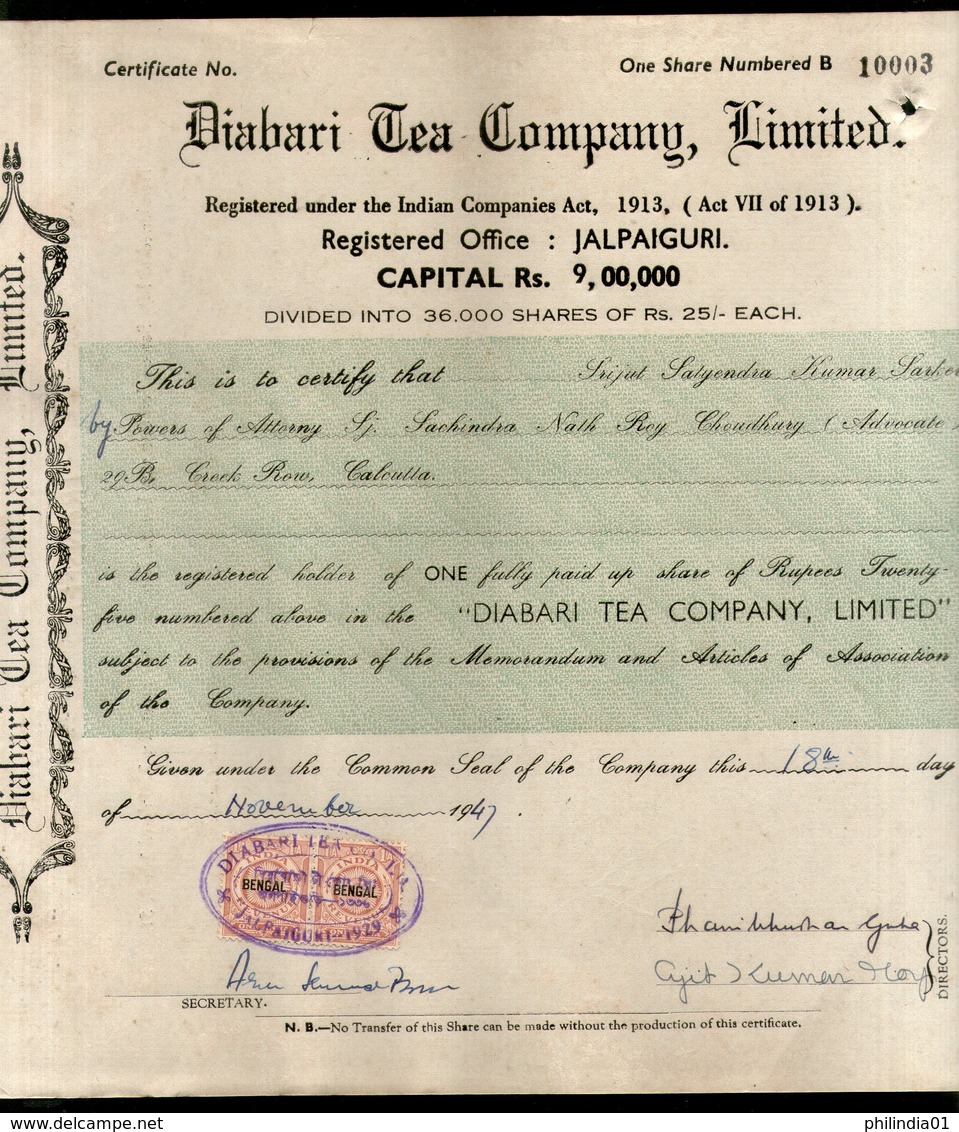 Certificate No.
One Share Numbered B 10003
Diabari Tea Company, Limited.
Registered under the Indian Companies Act, 1913, ( Act VII of 1913 ).
Registered Office : JALPAIGURI.
CAPITAL Rs. 9,00,000
DIVIDED INTO 36,000 SHARES OF Rs. 25/- EACH.
This is to certify that Srijut Satyendra Kumar Sarker
by Powers of Attorny Sj. Sachindra Nath Roy Choudhury ( Advocate )
29B, Creek Row, Calcutta.
is the registered holder of ONE fully paid up share of Rupees Twenty-
five numbered above in the "DIABARI TEA COMPANY, LIMITED"
subject to the provisions of the Memorandum and Articles of Association
of the Company.
Given under the Common Seal of the Company this 18th day
of November 1947.
DIABARI TEA CO. LTD.
INDIA INDIA
BENGAL BENGAL
REVENUE REVENUE
JALPAIGURI-1929
Phanibhushan Guha
Ajit Kumar
DIRECTORS.
SECRETARY.
N. B.—No Transfer of this Share can be made without the production of this certificate.
Diabari Tea Company, Limited.
philindia01